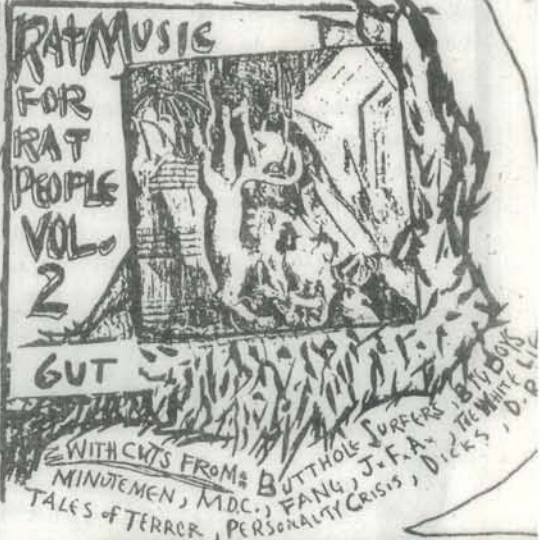 RAT MUSIC
FOR
RAT
PEOPLE
VOL.
2
GUT
WITH CUTS FROM: BUTTHOLE SURFERS, BIG BOYS
MINUTEMEN, M.D.C., FANG, J.F.A., THE WHITE LIE
TALES of TERROR, PERSONALITY CRISIS, DICKS, D.R